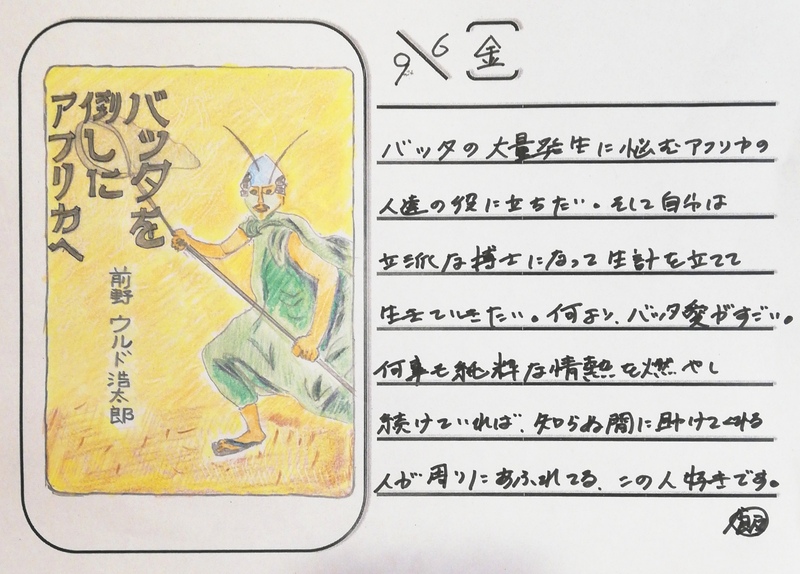 バッタを
倒した
アフリカへ
前野 ウルド 浩太郎
9/6 (金)
バッタの大量発生に悩むアフリカの
人達の役に立ちたい。そして自分は
立派な博士になって生計を立てて
生きていきたい。何より、バッタ愛がすごい。
何事も純粋な情熱を燃やし
続けていれば、知らぬ間に助けてくれる
人が周りにあふれてる、この人好きです。